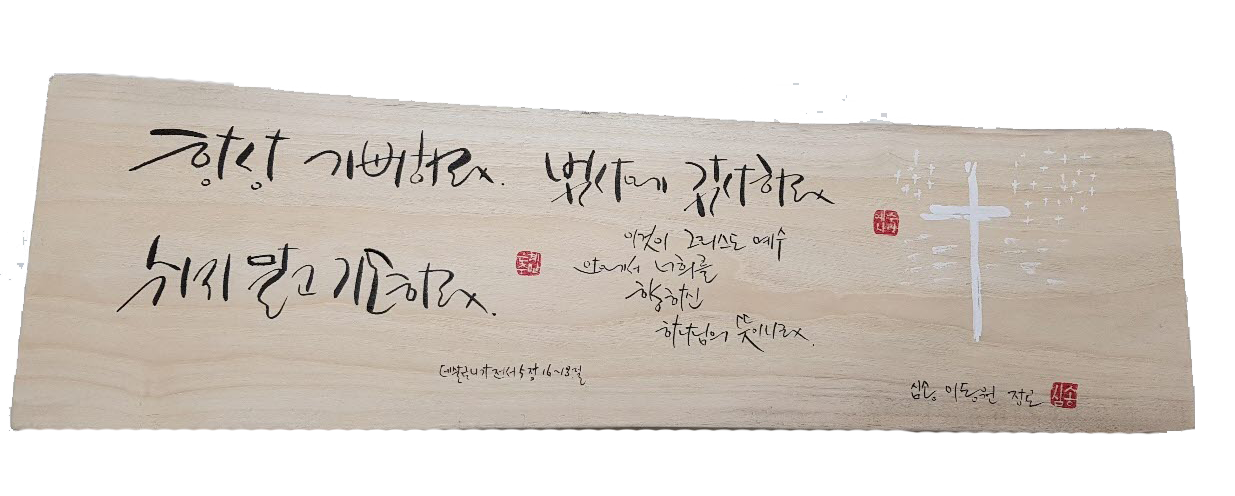 항상 기뻐하라.
쉬지 말고 기도하라.
범사에 감사하라
이것이 그리스도 예수
안에서 너희를
향하신
하나님의 뜻이니라.
데살로니가전서 5장 16~18절
심송 이동원 장로
심송